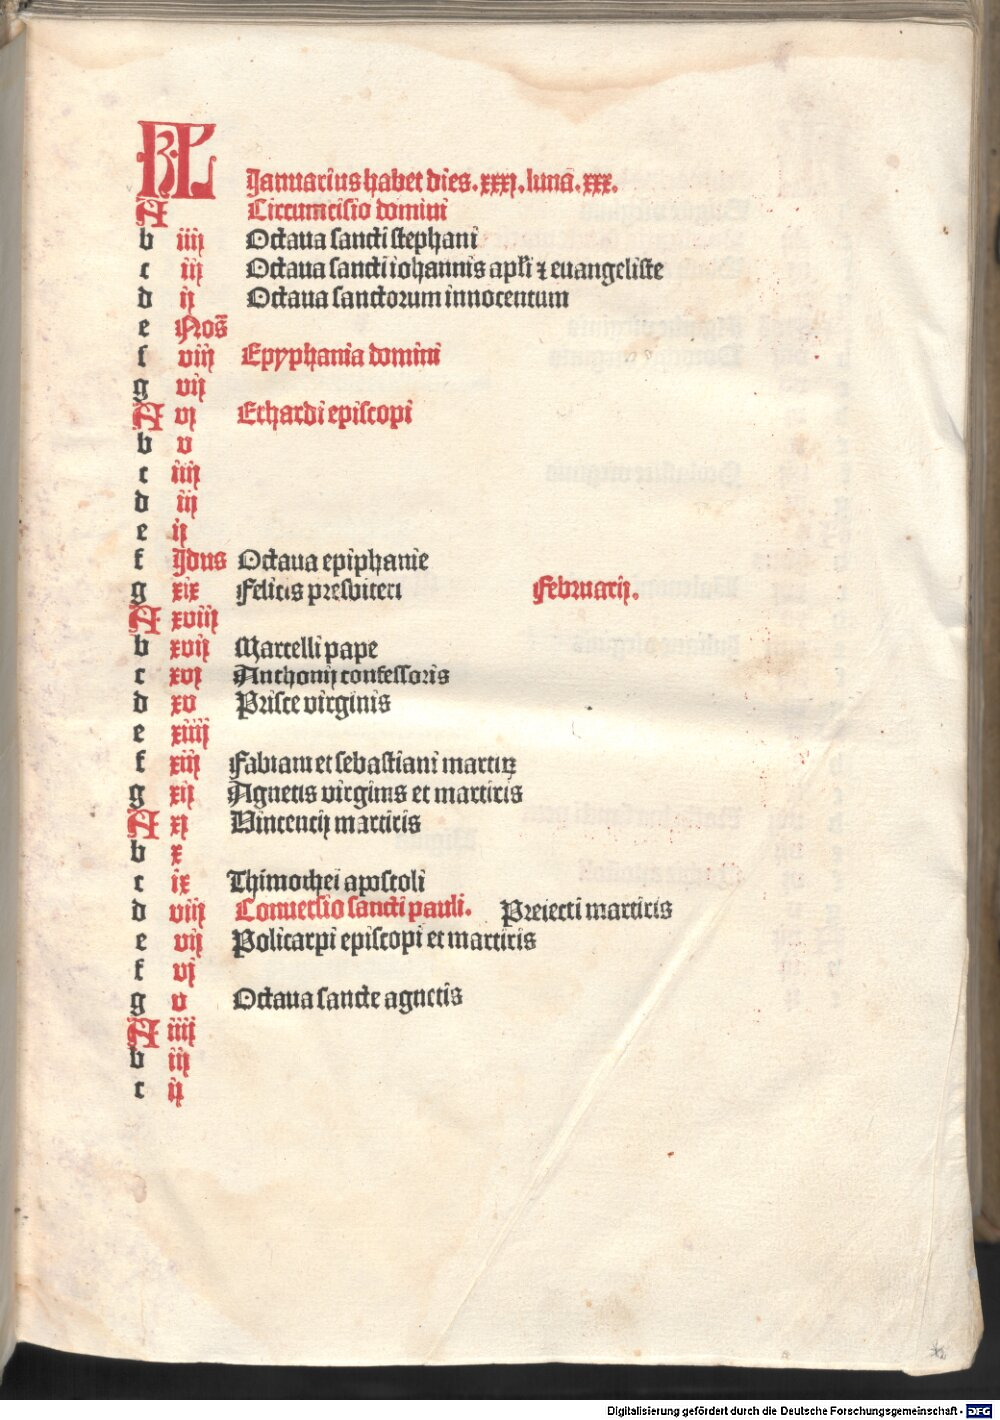 KL Januarius habet dies. xxxj. lunā. xxx.
A Circumcisio domini
b iiij Octaua sancti stephani
c iij Octaua sancti iohannis apl'i ⁊ euangeliste
d ij Octaua sanctorum innocentum
e Noñ
f viij Epyphania domini
g vij
A vj Erhardi episcopi
b v
c iiij
d iij
e ij
f Jdus Octaua epiphanie
g xix Felicis presbiteri Februarij.
A xviij
b xvij Marcelli pape
c xvj Anthonij confessoris
d xv Prisce virginis
e xiiij
f xiij Fabiani et sebastiani martiꝝ
g xij Agnetis virginis et martiris
A xj Vincencij martiris
b x
c ix Thimothei apostoli
d viij Conuersio sancti pauli. Preiecti martiris
e vij Policarpi episcopi et martiris
f vj
g v Octaua sancte agnetis
A iiij
b iij
c ij
Digitalisierung gefördert durch die Deutsche Forschungsgemeinschaft - DFG